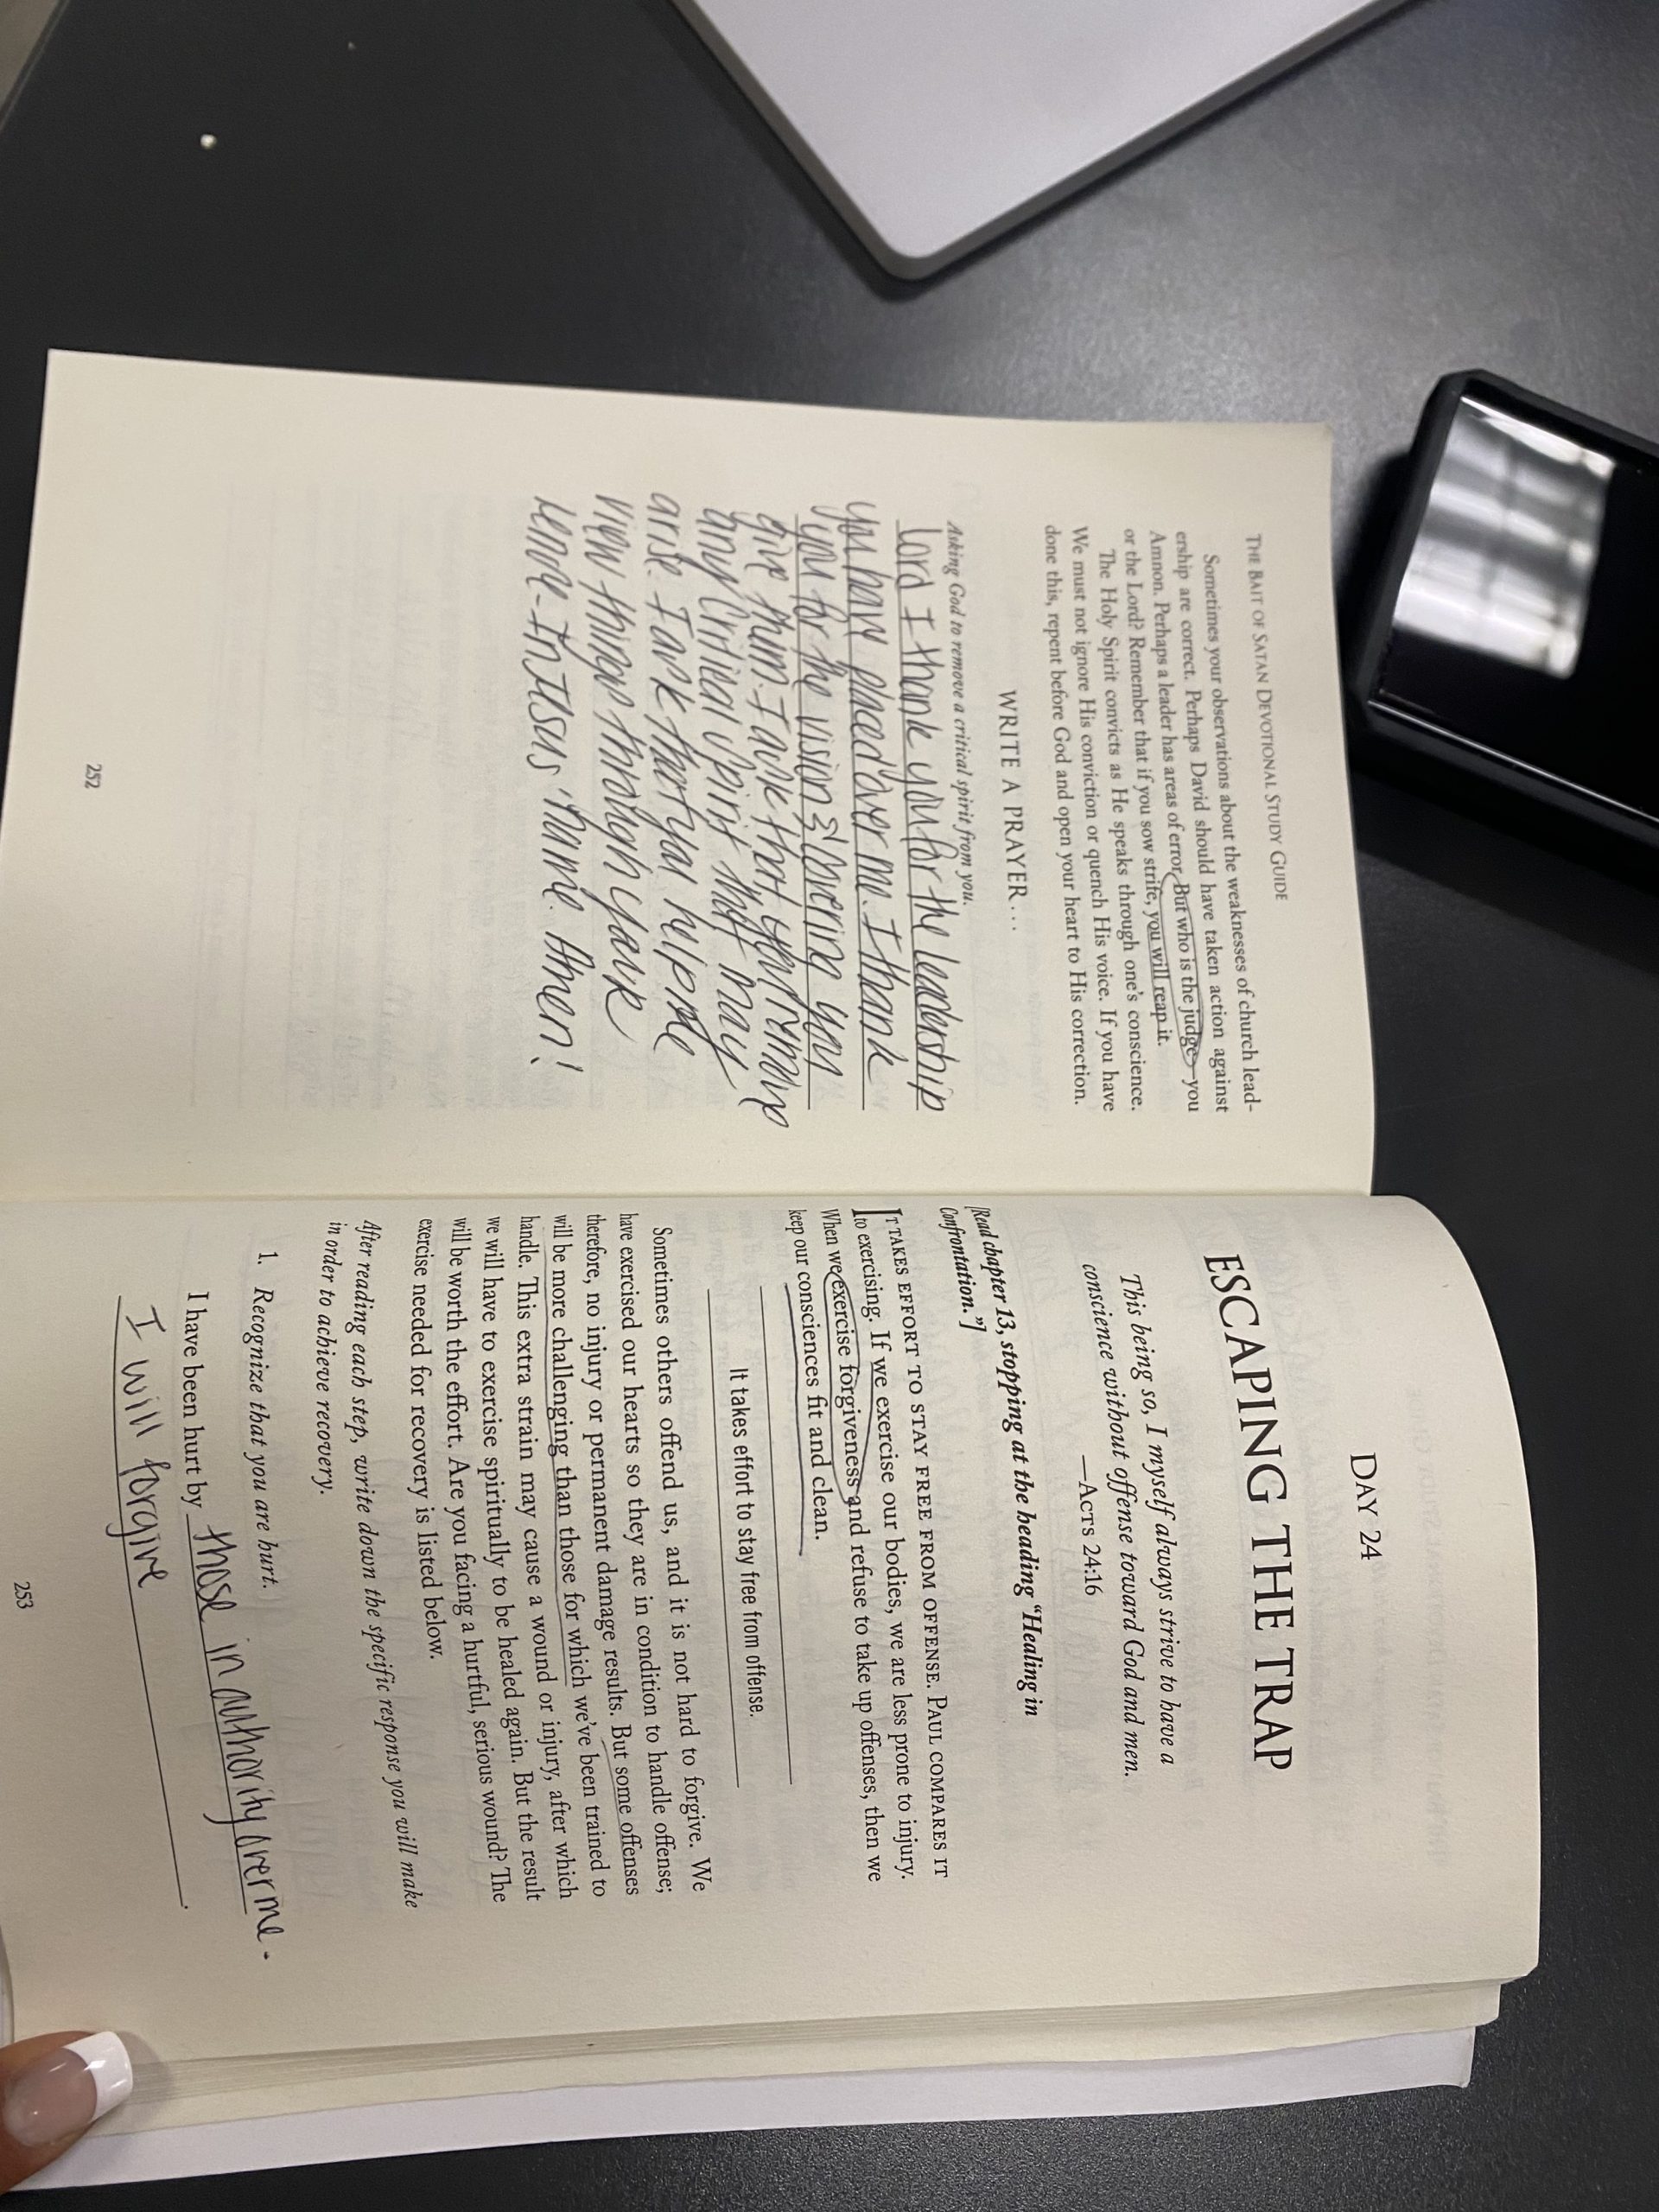 THE BAIT OF SATAN DEVOTIONAL STUDY GUIDE
Sometimes your observations about the weaknesses of church lead-
ership are correct. Perhaps David should have taken action against
Amnon. Perhaps a leader has areas of error. But who is the judge—you
or the Lord? Remember that if you sow strife, you will reap it.
The Holy Spirit convicts as He speaks through one's conscience.
We must not ignore His conviction or quench His voice. If you have
done this, repent before God and open your heart to His correction.
WRITE A PRAYER...
Asking God to remove a critical spirit from you.
Lord I thank you for the leadership
you have placed over me. I thank
you for the vision & covering you
give them. I ask that you remove
any critical spirit that may
arise. I ask that you help me
view things through your
lense. In Jesus' name. Amen!
252
DAY 24
ESCAPING THE TRAP
This being so, I myself always strive to have a
conscience without offense toward God and men.
—ACTS 24:16
[Read chapter 13, stopping at the heading “Healing in
Confrontation.”]
IT TAKES EFFORT TO STAY FREE FROM OFFENSE. PAUL COMPARES IT
to exercising. If we exercise our bodies, we are less prone to injury.
When we exercise forgiveness and refuse to take up offenses, then we
keep our consciences fit and clean.
It takes effort to stay free from offense.
Sometimes others offend us, and it is not hard to forgive. We
have exercised our hearts so they are in condition to handle offense;
therefore, no injury or permanent damage results. But some offenses
will be more challenging than those for which we've been trained to
handle. This extra strain may cause a wound or injury, after which
we will have to exercise spiritually to be healed again. But the result
will be worth the effort. Are you facing a hurtful, serious wound? The
exercise needed for recovery is listed below.
After reading each step, write down the specific response you will make
in order to achieve recovery.
1. Recognize that you are hurt.
I have been hurt by those in authority over me.
I will forgive
253